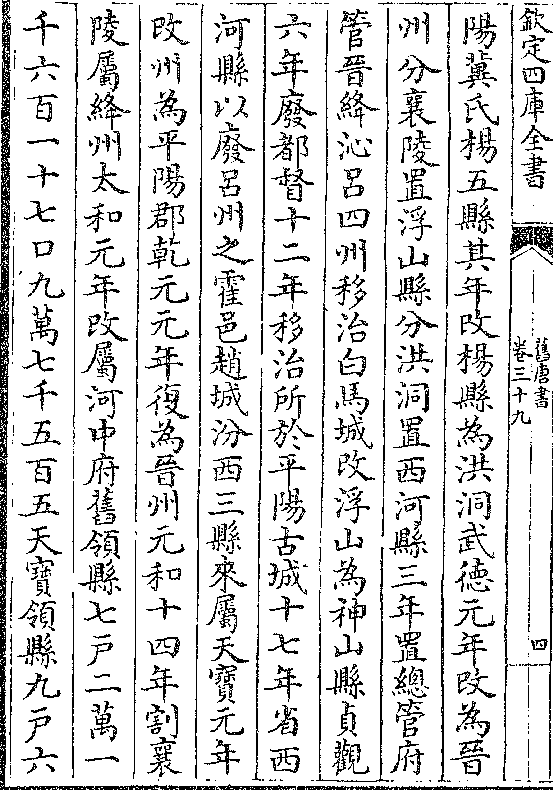 欽定四庫全書
舊唐書
卷三十九
四
陽冀氏楊五縣其年改楊縣為洪洞武德元年改為晉
州分襄陵置浮山縣分洪洞置西河縣三年置總管府
管晉絳沁吕四州移治白馬城改浮山為神山縣貞觀
六年廢都督十二年移治所於平陽古城十七年省西
河縣以廢呂州之霍邑趙城汾西三縣來屬天寶元年
改州為平陽郡乾元元年復為晉州元和十四年割襄
陵屬絳州太和元年改屬河中府舊領縣七戸二萬一
千六百一十七口九萬七千五百五天寶領縣九戸六